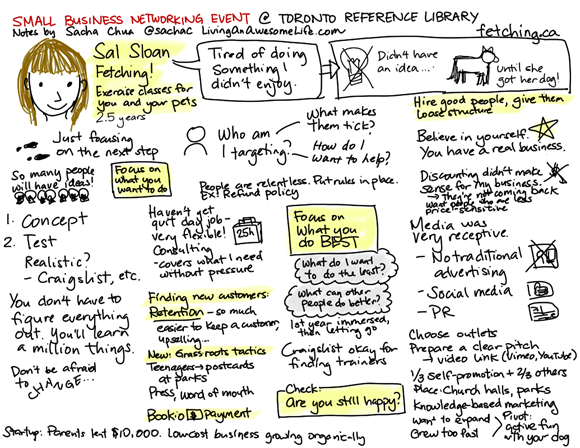 SMALL BUSINESS NETWORKING EVENT @ TORONTO REFERENCE LIBRARY
Notes by Sacha Chua @sachac LivingAnAwesomeLife.com
fetching.ca
Sal Sloan
Fetching!
Exercise classes for
you and your pets
2.5 years
Tired of doing
something I
didn't enjoy.
Didn't have
an idea...
Until she
got her dog!
Just focusing
on the next step
So many people
will have ideas!
Focus on
what you
want to do
Who am
I targeting?
What makes
them tick?
How do I
want to help?
People are relentless. Put rules in place.
Ex: Refund policy
Hire good people, give them
loose structure
Believe in yourself.
You have a real business.
Discounting didn't make
sense for my business.
→ They're not coming back
want people who are less
price-sensitive
1. Concept
2. Test
Realistic?
- Craigslist, etc.
You don't have to
figure everything
out. You'll learn
a million things.
Don't be afraid
to CHANGE...
Haven't get
quit day job -
very flexible!
Consulting
- covers what I need
without pressure
25h
Finding new customers:
Retention - so much
easier to keep a customer,
upselling...
New: Grassroots tactics
Teenagers → postcards
at parks
Press, word of mouth
Booking $ Payment
Focus on
what you
do BEST
What do I want
to do the least?
What can other
people do better?
1st year immersed,
then letting go
Craigslist okay for
finding trainers
Check:
Are you still happy?
Media was
very receptive.
- No traditional
advertising
- Social media
- PR
Choose outlets
Prepare a clear pitch
→ video link (Vimeo, YouTube)
1/3 self-promotion + 2/3 others
Place: Church halls, parks
Knowledge-based marketing
want to expand
Grew too fast
Pivot:
active fun
with your dog
Startup: Parents lent $10,000. Low cost business growing organically